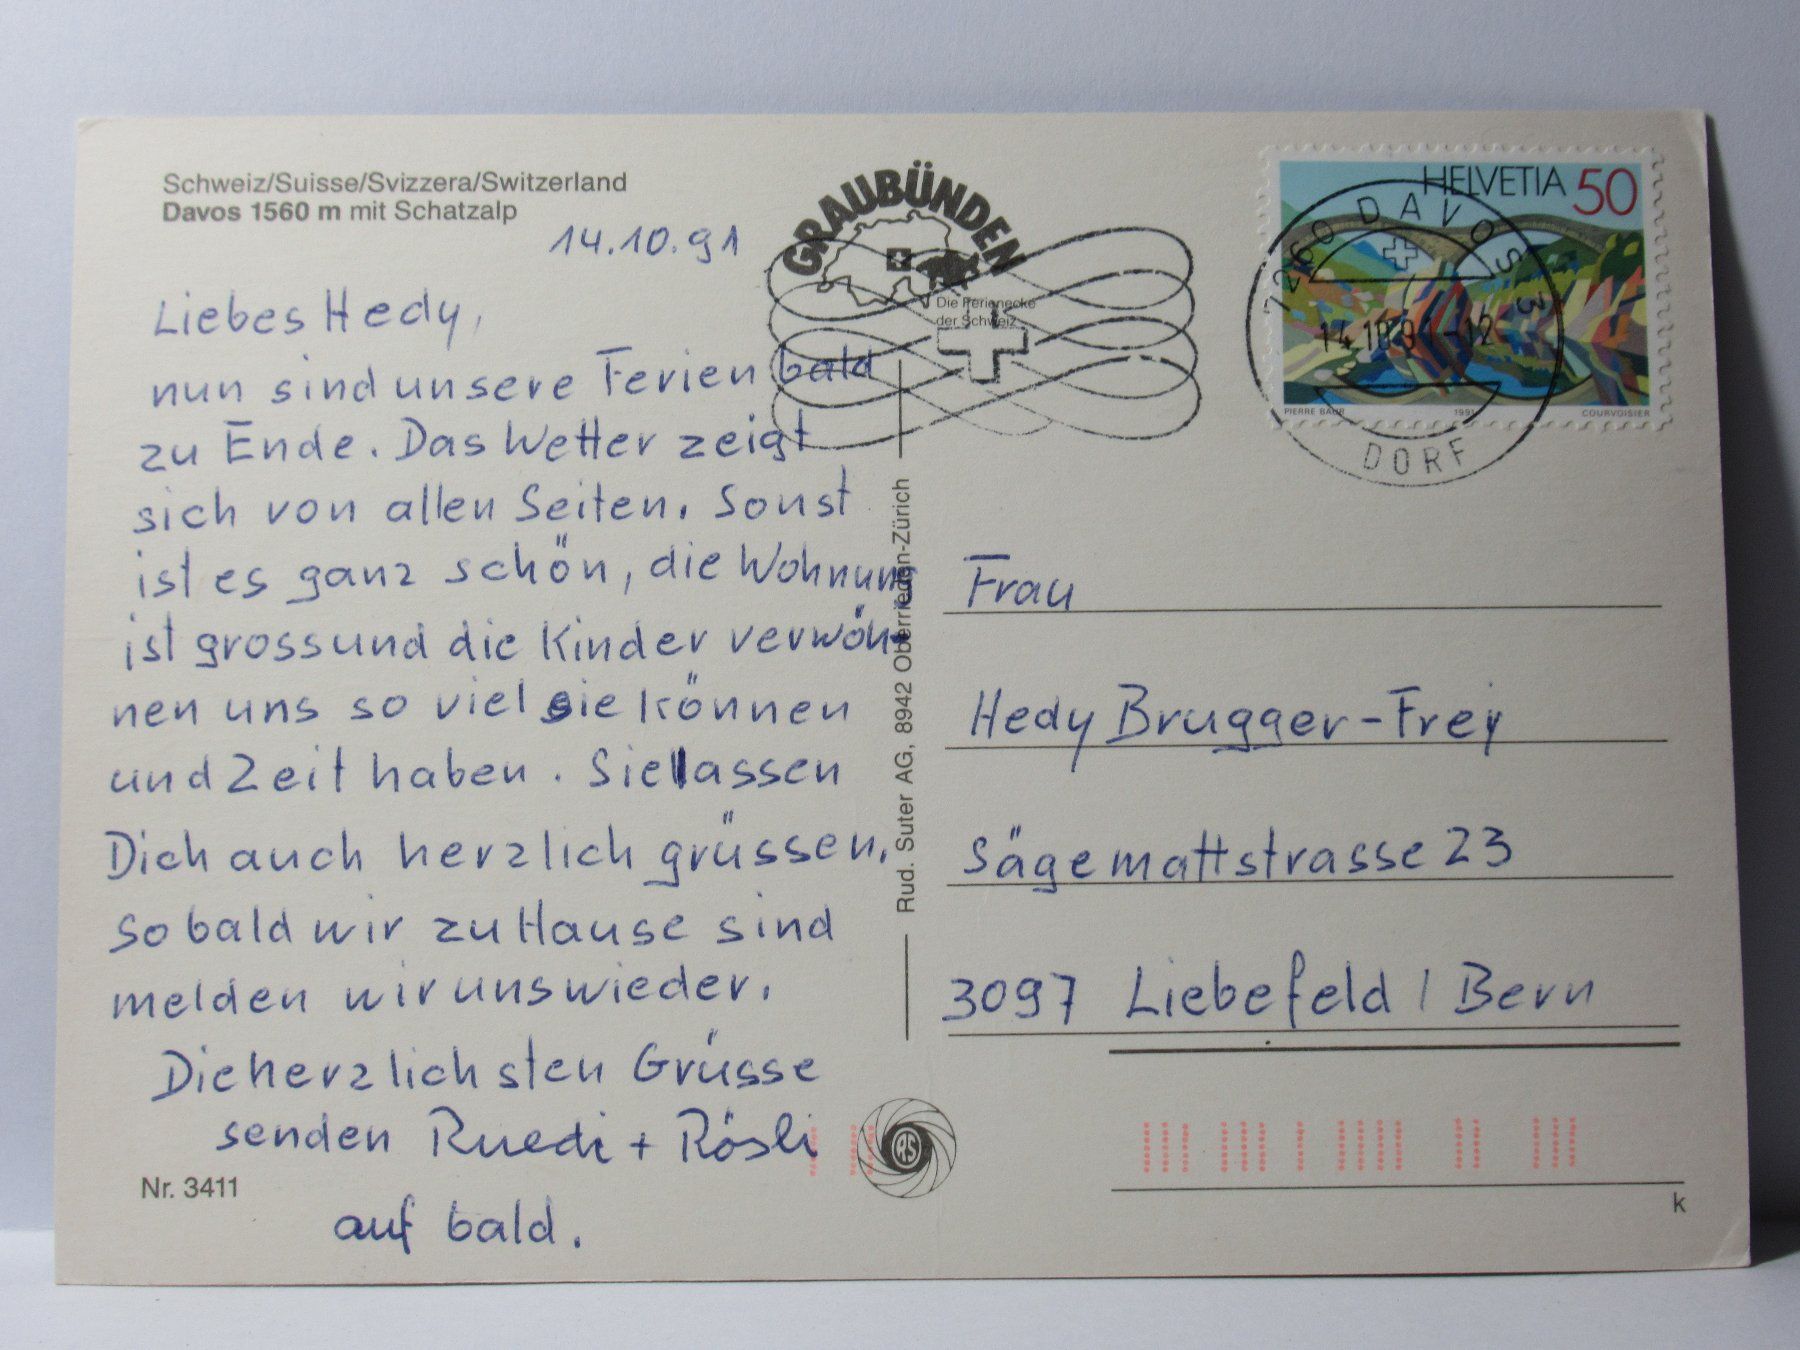 Schweiz/Suisse/Svizzera/Switzerland
Davos 1560 m mit Schatzalp
14.10.91
Liebes Hedy,
nun sind unsere Ferien bald
zu Ende. Das Wetter zeigt
sich von allen Seiten. Sonst
ist es ganz schön, die Wohnung
ist gross und die Kinder verwöh-
nen uns so viel sie können
und Zeit haben. Sie lassen
Dich auch herzlich grüssen.
So bald wir zu Hause sind
melden wir uns wieder.
Die herzlichsten Grüsse
senden Ruedi + Rösli
auf bald.
Nr. 3411
GRAUBÜNDEN
Die Ferienecke
der Schweiz
Rud. Suter AG, 8942 Oberrieden-Zürich
RS
HELVETIA 50
PIERRE BAUR 1991 COURVOISIER
7260 DAVOS 3
14.10.91-12
DORF
Frau
Hedy Brugger-Frey
Sägemattstrasse 23
3097 Liebefeld / Bern
k